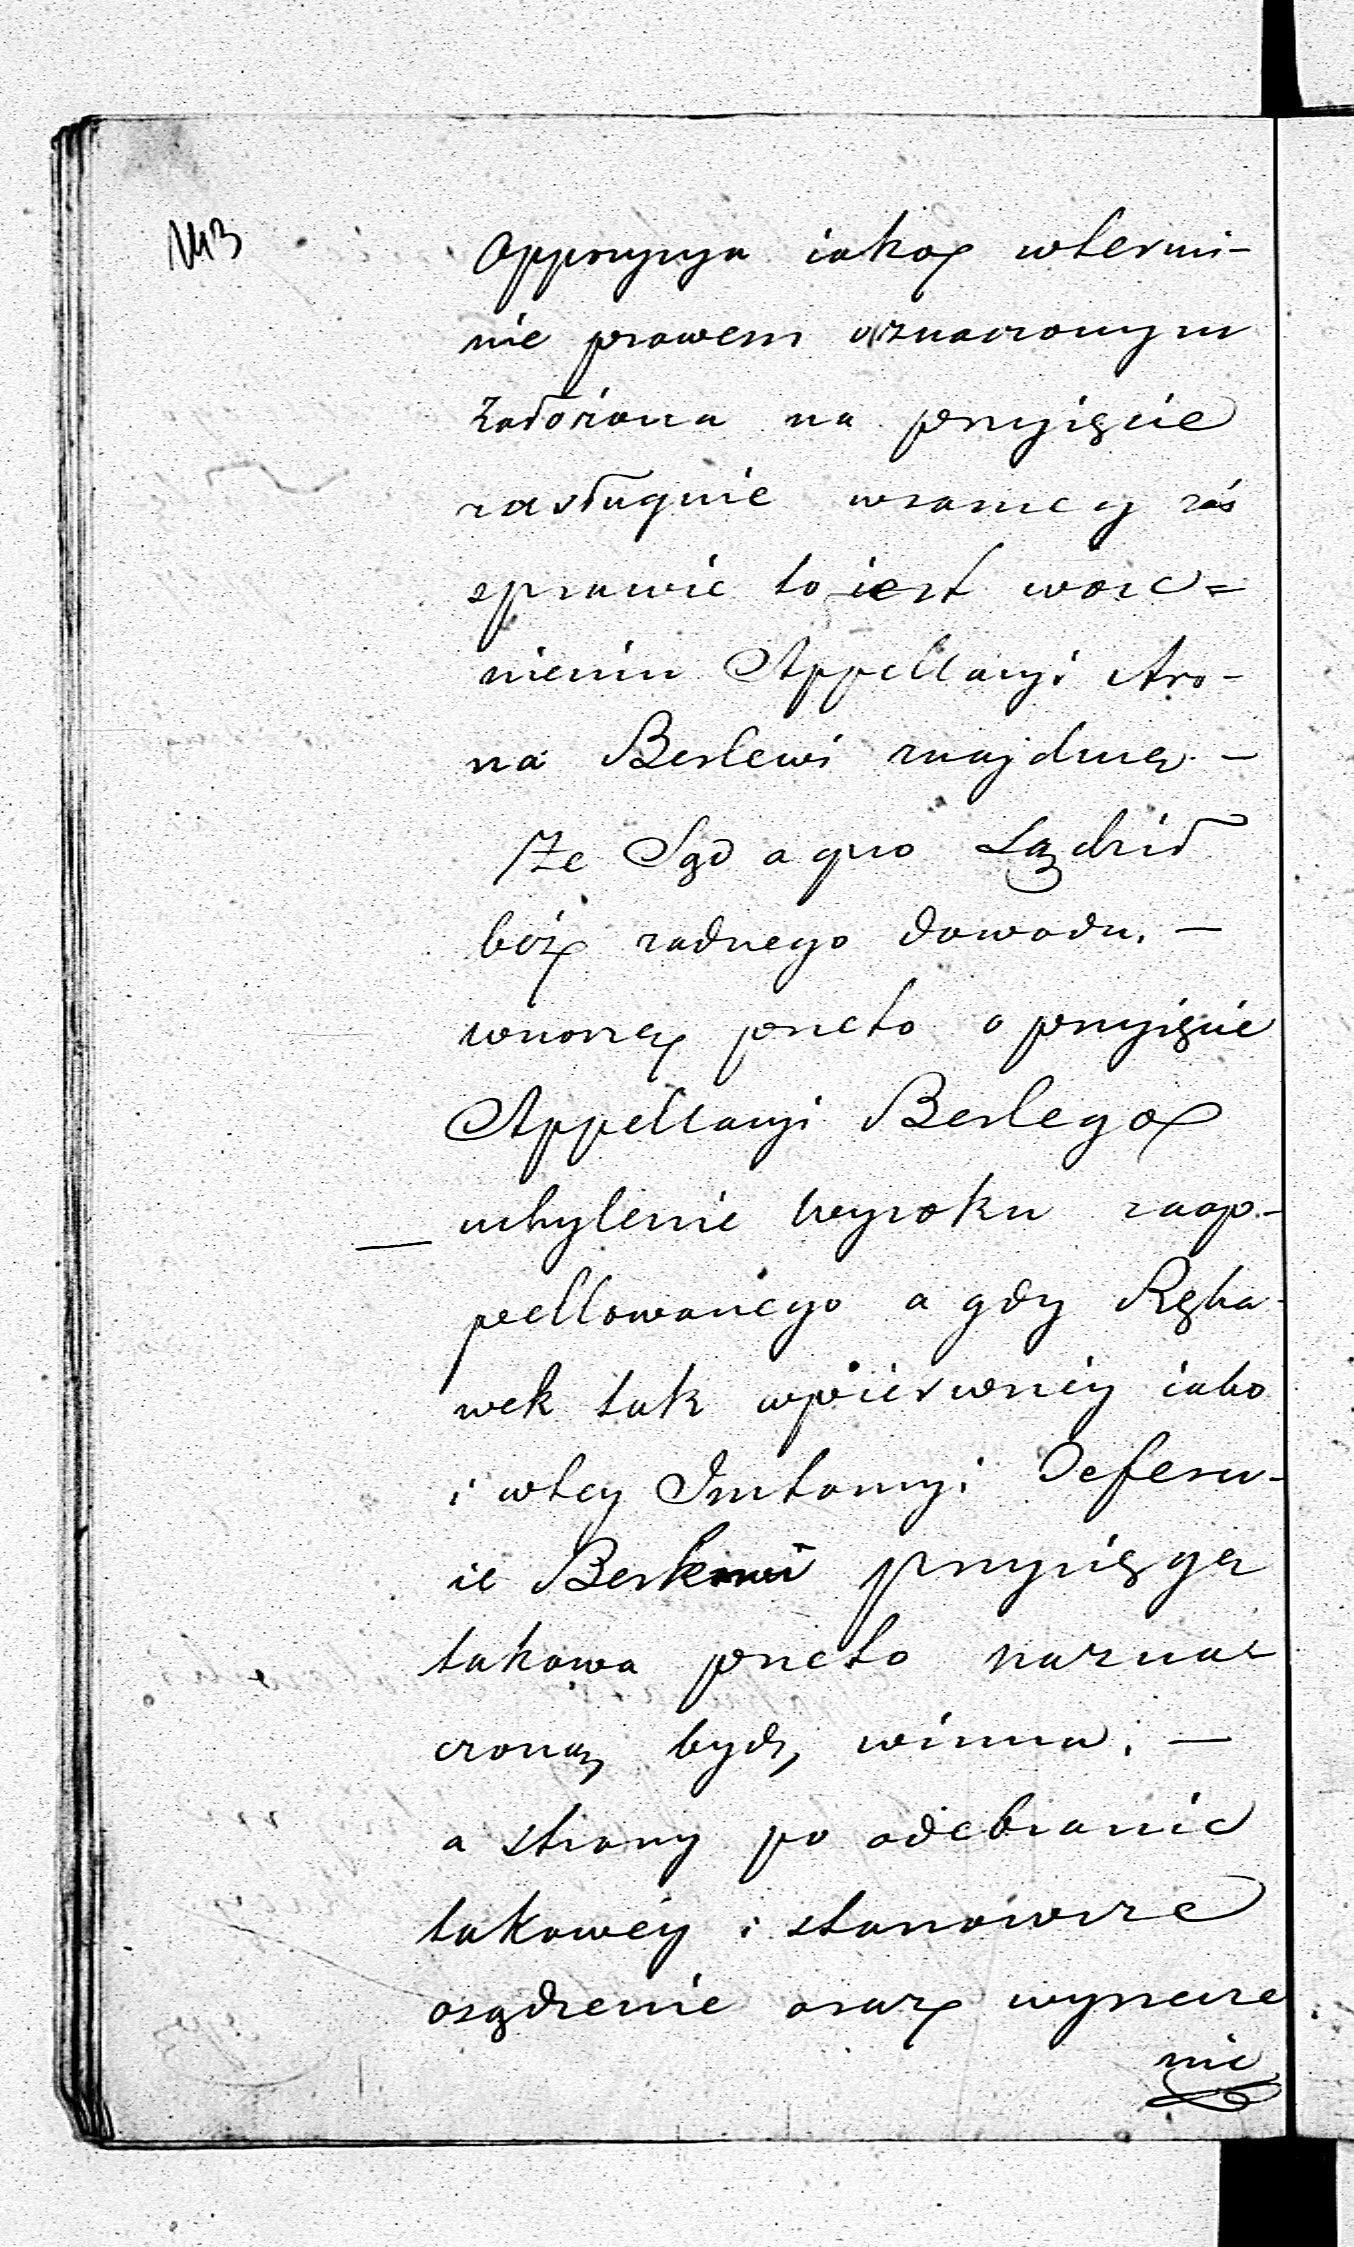 1143
Oppozycya iako w termi-
nie prawem oznaczonym
założona na przyięcie
zasługuie w samey zaś
sprawie to iest w oce=
nieniu Appellacyi Aro-
na Berlewi znajduię. —
że Sąd a quo Sądził
bez żadnego dowodu. —
wnoszę przeto o przyięcie
Appellacyi Berlego
uchylenie Wyroku zaap-
pellowanego a gdy Ręka-
wek tak w pierwszey iako
i w tey Instancyi Deferu-
ie Berkowi przysięgę
takowa przeto naznac
czoną bydź winna. —
a strony po odebranie
takowéy i stanowcze
osądzenie oraz wyrzecze
nie